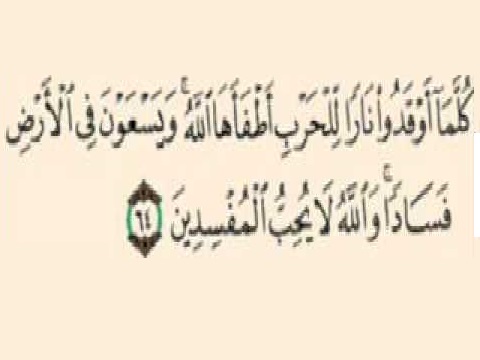 كُلَّمَآ أَوْقَدُوا۟ نَارًا لِّلْحَرْبِ أَطْفَأَهَا ٱللَّهُ ۚ وَيَسْعَوْنَ فِى ٱلْأَرْضِ
فَسَادًا ۚ وَٱللَّهُ لَا يُحِبُّ ٱلْمُفْسِدِينَ ٦٤